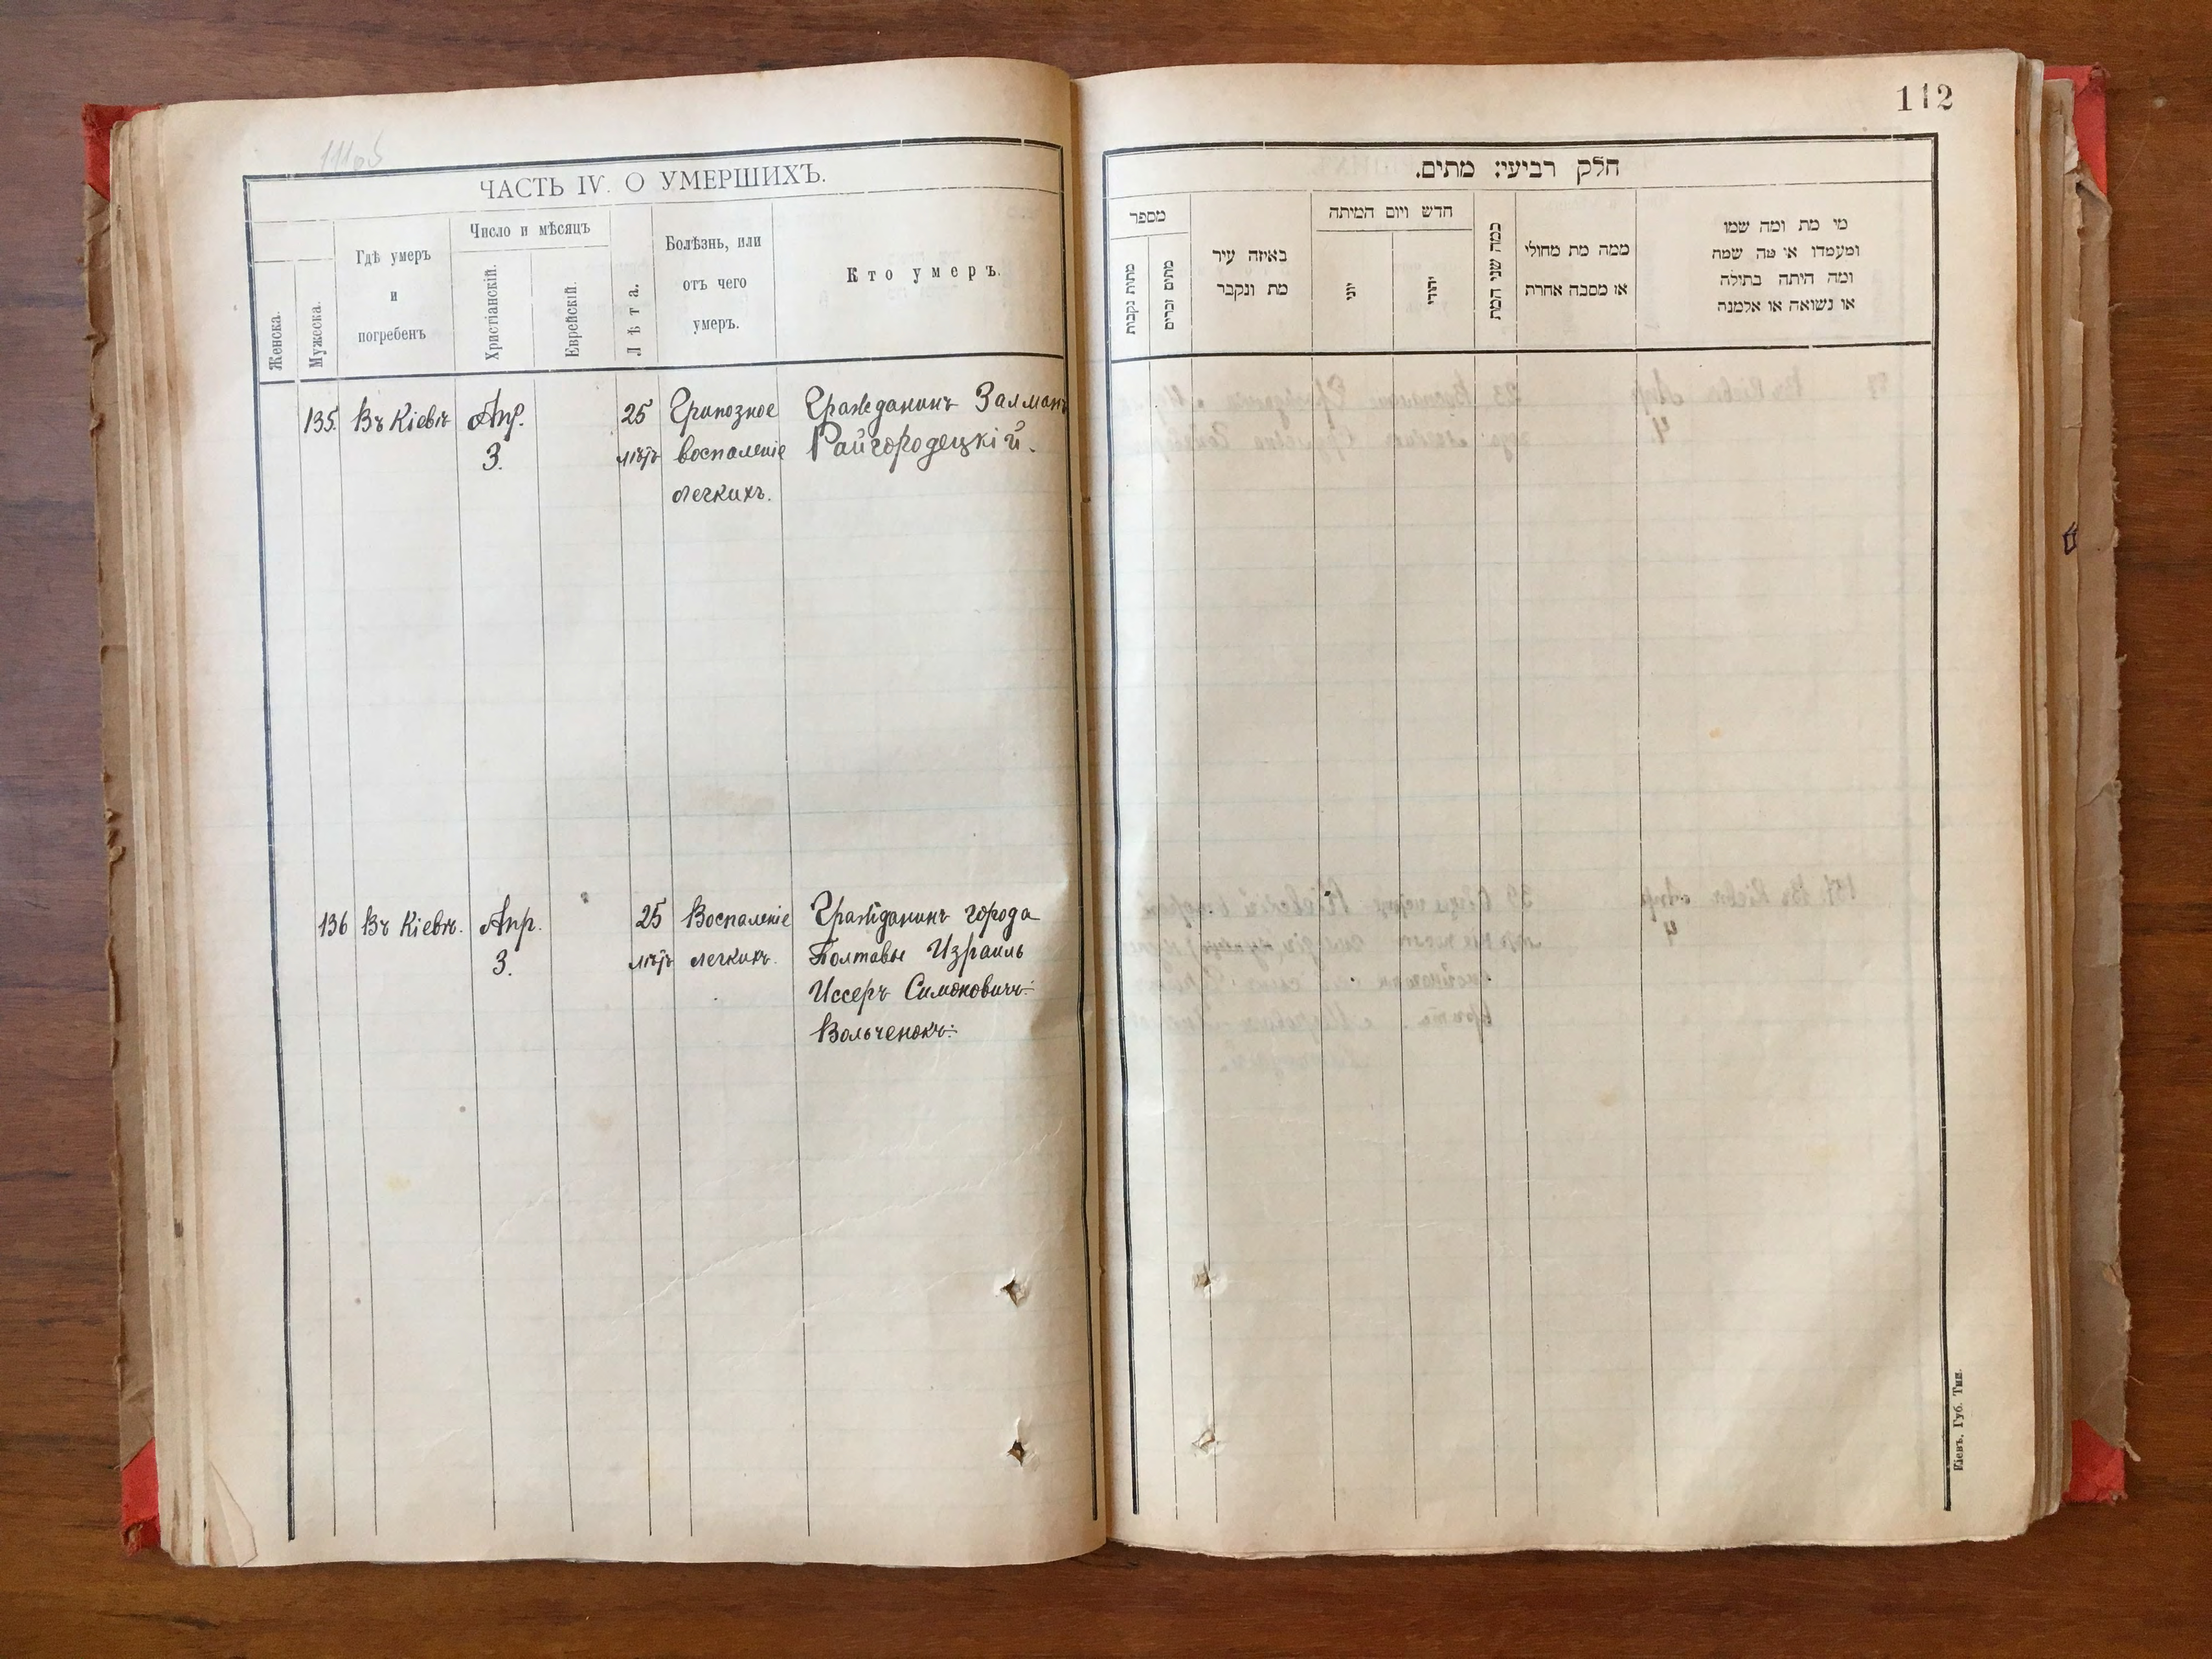 111об
ЧАСТЬ IV. О УМЕРШИХЪ.
Женска.
Мужеска.
Гдѣ умеръ
и
погребенъ
Число и мѣсяцъ
Христіанскій.
Еврейскій.
Лѣта.
Болѣзнь, или
отъ чего
умеръ.
Кто умеръ.
135. Въ Кіевѣ Апр. 25 Грипозное Гражданинъ Залманъ
3. лѣтъ воспаленіе Райгородецкій.
легкихъ.
136 Въ Кіевѣ. Апр. 25 Воспаленіе Гражданинъ города
3. лѣтъ легкихъ. Полтавы Израиль
Иссеръ Симоновичъ
Вольченокъ
112
חלק רביעי: מתים.
מספר
מתות נקבות
מתים זכרים
באיזה עיר
מת ונקבר
חדש ויום המיתה
יוני
יהודי
כמה שני המת
ממה מת מחולי
או מסבה אחרת
מי מת ומה שמו
ומעמדו או מה שמה
ומה היתה בתולה
או נשואה או אלמנה
Кіевъ, Губ. Тип.